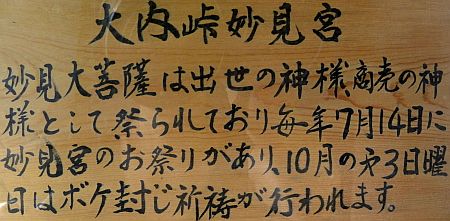 大内峠妙見宮
妙見大菩薩は出世の神様、商売の神
様として祭られており毎年7月14日に
妙見宮のお祭りがあり、10月の第3日曜
日はボケ封じ祈祷が行われます。